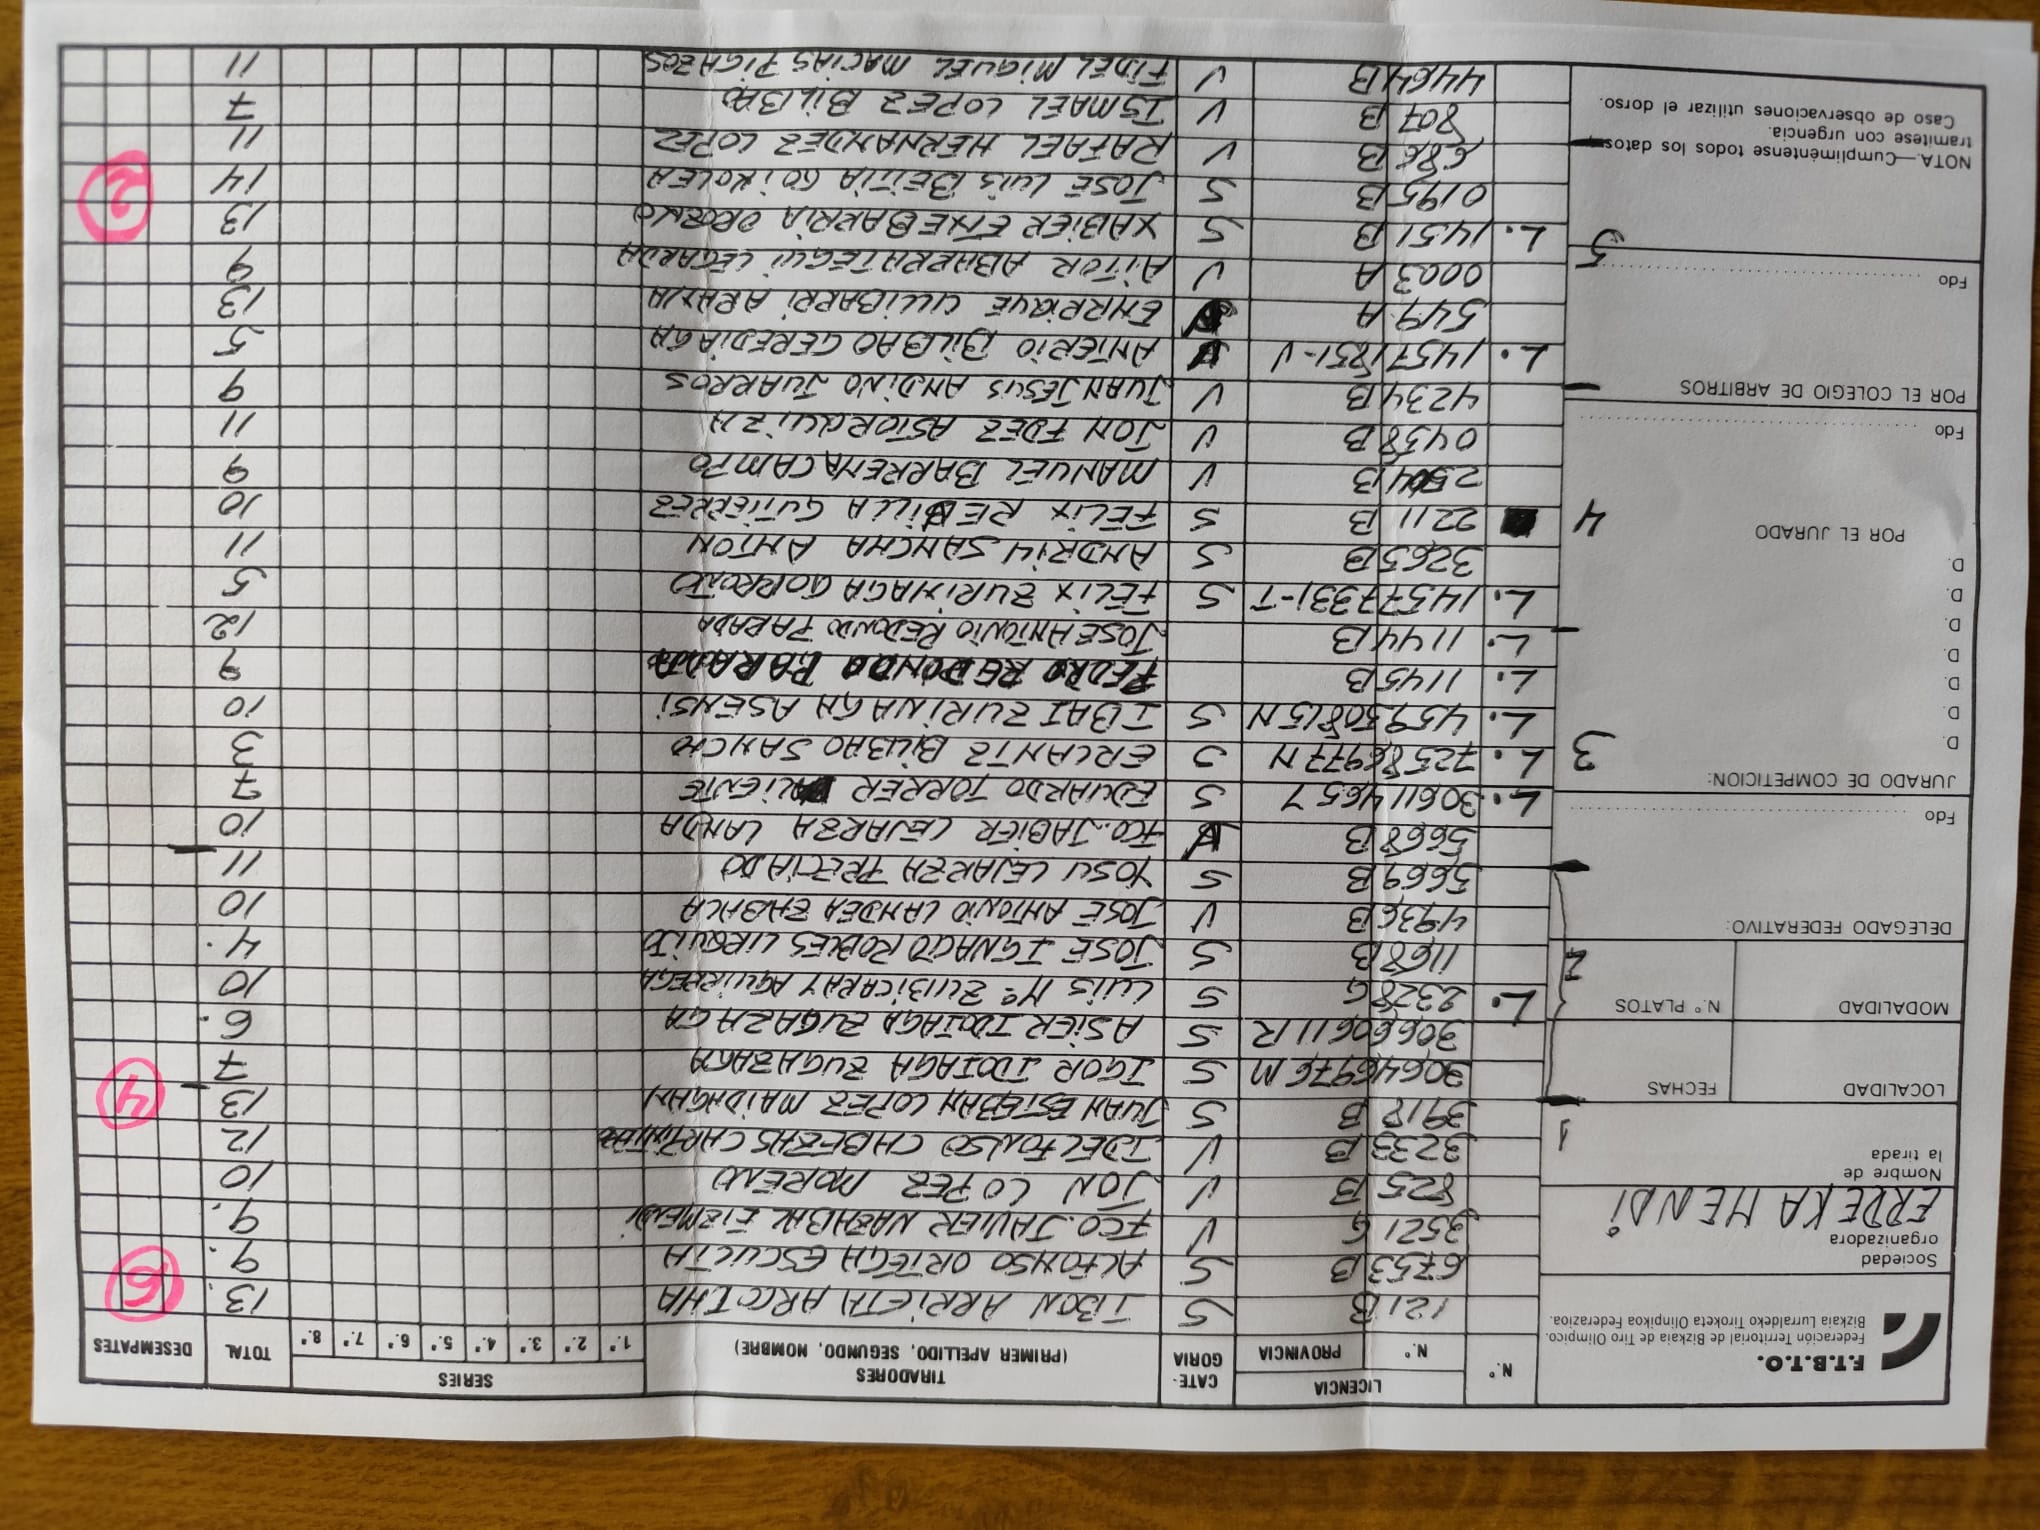 F.T.B.T.O.
Federación Territorial de Bizkaia de Tiro Olimpico.
Bizkaia Lurraldeko Tiroketa Olinpikoa Federazioa.
Sociedad
organizadora
ERDEKA MENDi
Nombre de
la tirada
LOCALIDAD FECHAS
MODALIDAD N.º PLATOS
DELEGADO FEDERATIVO:
Fdo
JURADO DE COMPETICION:
D.
D.
D.
D.
D.
D.
D.
POR EL JURADO
Fdo
POR EL COLEGIO DE ARBITROS
Fdo
NOTA.—Cumpliméntense todos los datos,
tramítese con urgencia.
Caso de observaciones utilizar el dorso.
1
2
3
4
5
N.º LICENCIA CATE- TIRADORES SERIES TOTAL DESEMPATES
N.º PROVINCIA GORIA (PRIMER APELLIDO, SEGUNDO, NOMBRE) 1.ª 2.ª 3.ª 4.ª 5.ª 6.ª 7.ª 8.ª
121 B S IBON ARRIETA ARCOTHA 13.
6753 B S ALFONSO ORTEGA ESCUCTA 9. 6
3521 G V FCO. JAVIER NAZABAL EIZMENDI 9.
825 B V JON LOPEZ MORENO 10
3233 B V IDELFONSO CABEZAS 12
3918 B S JUAN ESTEBAN LOPEZ MAIDAGAN 13 4
30646976 M S IGOR IDOIAGA ZUGAZAGA 7
30660611 R S ASIER IDOIAGA ZUGAZAGA 6.
L. 2328 G S LUIS Mª ZUBICARAY AGUIRREGA 10
1168 B S JOSE IGNACIO ROBLES LIRQUIO 4.
4936 B V JOSE ANTONIO LANDEA ZABALA 10
5669 B S YOSU LEJARZA PRECIADO 11
5668 B V FCO. JABIER LEJARZA LANDA 10
L. 30611465 Y S EDUARDO TORRER 7
L. 72586977 N S ERLANTZ BILBAO SANCHO 3
L. 45930815 N S IBAI ZURINAGA ASENSI 10
L. 1145 B PEDRO REDONDO PARADA 9
L. 1144 B JOSE ANTONIO REDONDO PARADA 12
L. 14577331-T S FELIX ZURINAGA GORROÑO 5
3265 B S ANDRIU SANCHA ANTON 11
2211 B S FELIX REVILLA GUTIERREZ 10
2504 B V MANUEL BARRENA CAMPO 9
0438 B V JON FDEZ ASTORQUIZA 11
4234 B V JUAN JESUS ANDINO JUARROS 9
L. 14571851-V V ANTERIO BILBAO GEREDIAGA 5
549 A ENRRIQUE ULLIBARRI ARANA 13
0003 A V AITOR ABARRATEGUI LEGARDA 9
L. 1451 B S XABIER ETXEBARRIA OROENO 13
0195 B S JOSE LUIS BEITIA GOIKOLEA 14 2
686 B V RAFAEL HERNANDEZ LOPEZ 11
807 B V ISMAEL LOPEZ BILBAO 7
4464 B V FIDEL MIGUEL MACIAS PIGAZOS 11